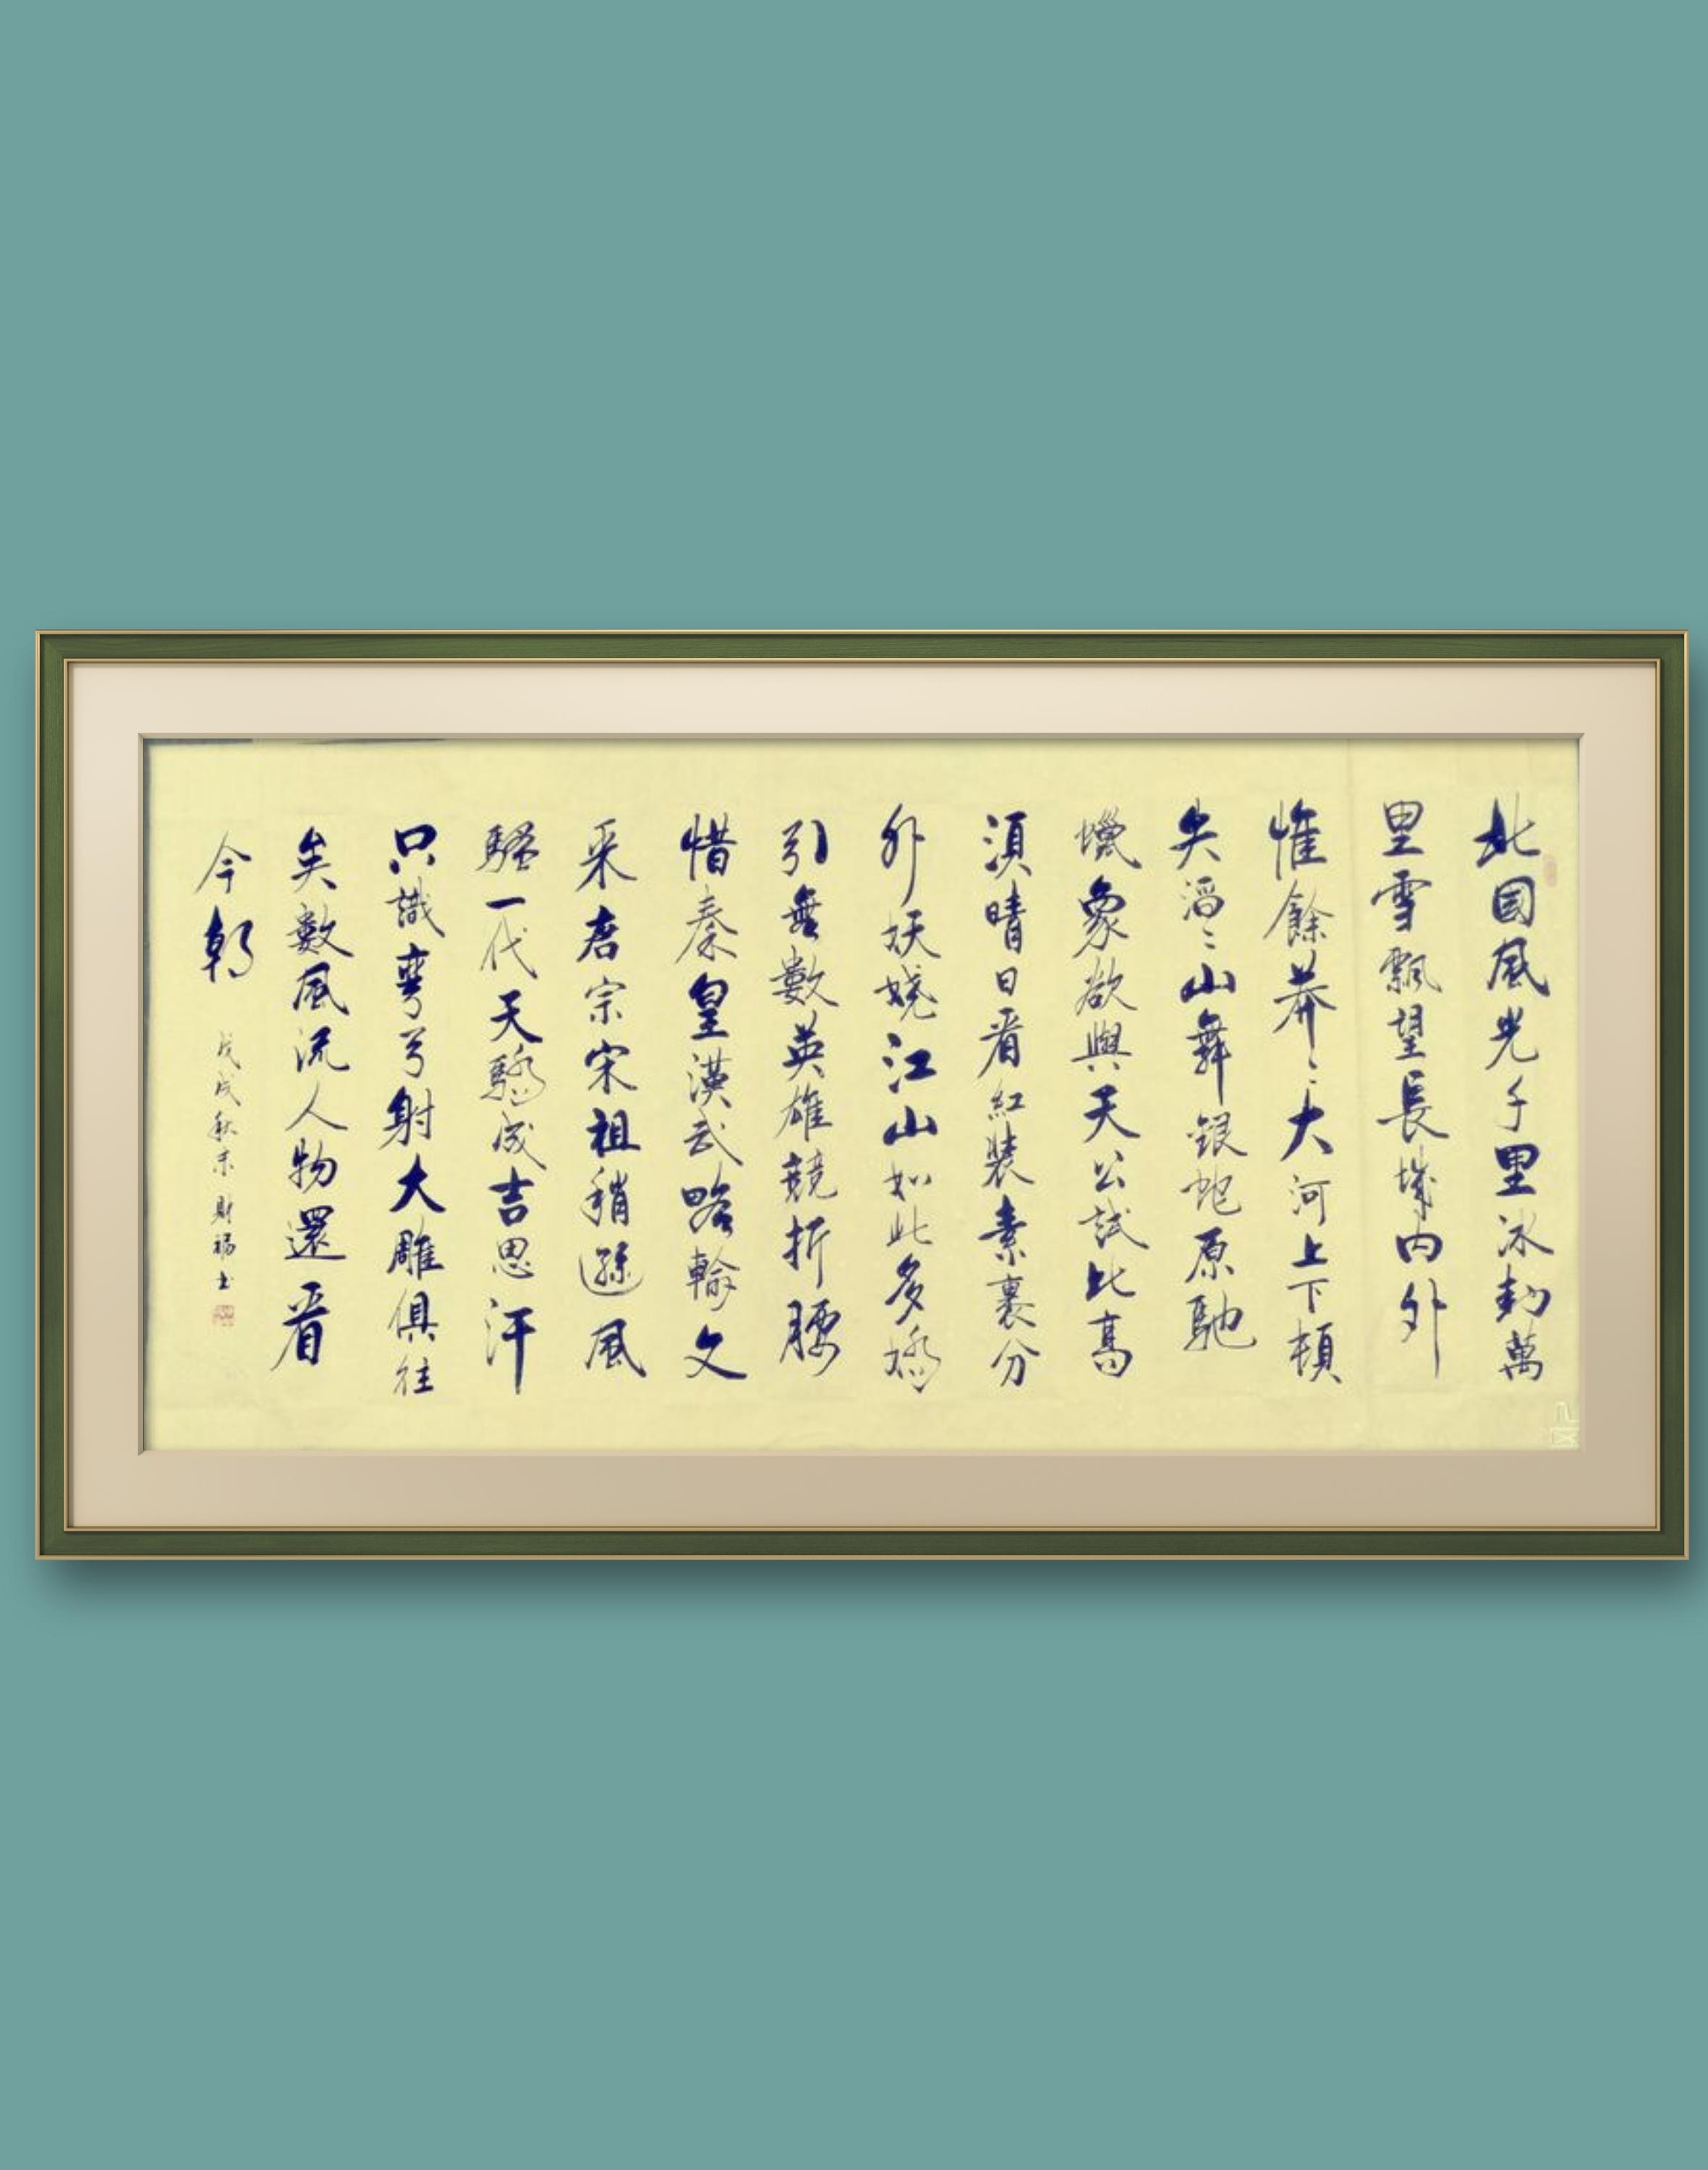 北國風光千里冰封萬
里雪飄望長城内外
惟餘莽〻大河上下頓
失滔〻山舞銀蛇原馳
蠟象欲與天公試比高
須晴日看紅裝素裹分
外妖嬈江山如此多嬌
引無數英雄競折腰
惜秦皇漢武略輸文
采唐宗宋祖稍遜風
騷一代天驕成吉思汗
只識彎弓射大雕俱往
矣數風流人物還看
今朝
戊戌秋末財福书